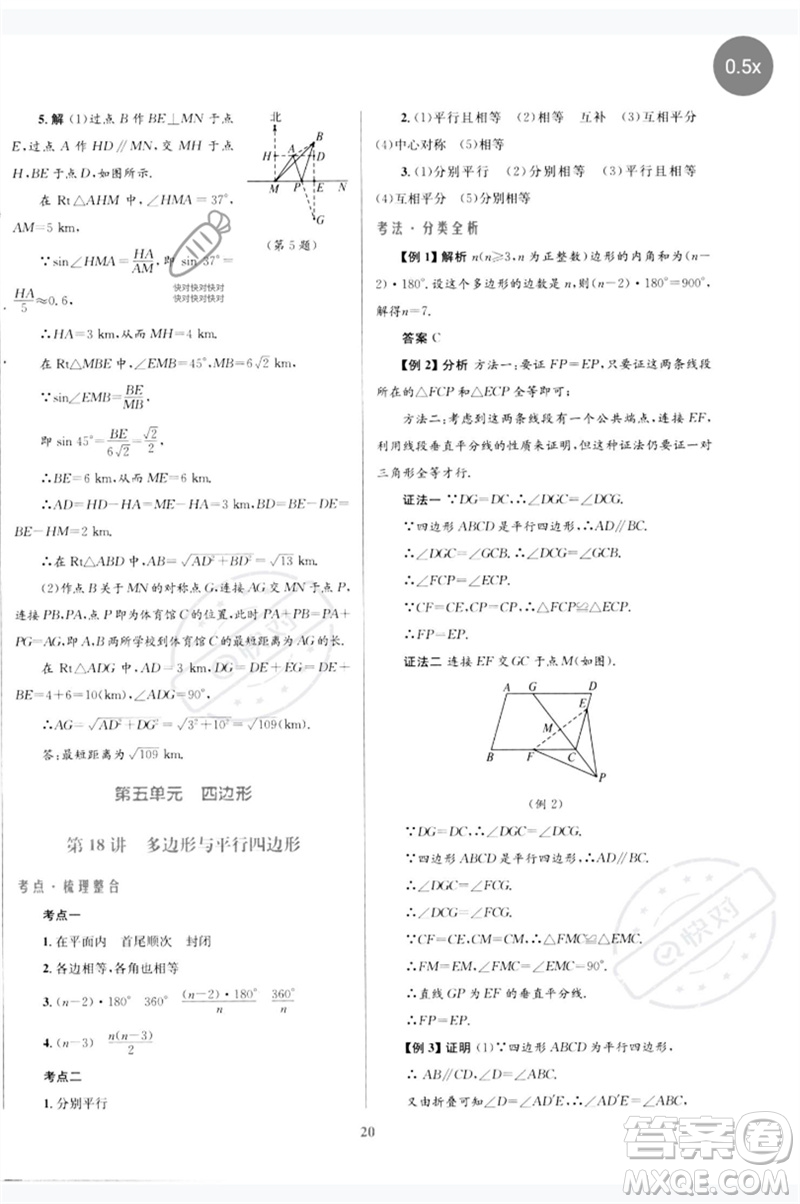 0.5x
5.解 (1)过点 B 作 BE⊥MN 于点
E,过点 A 作 HD∥MN,交 MH 于点
H,BE 于点 D,如图所示.
北
B
H
A
D
M
P
E
N
G
(第 5 题)
在 Rt△AHM 中,∠HMA=37°,
AM=5 km.
∵sin∠HMA=HA/AM,即 sin 37°=
HA/5≈0.6,
快对快对快对
快对快对快对
∴HA=3 km,从而 MH=4 km.
在 Rt△MBE 中,∠EMB=45°,MB=6√2 km,
∵sin∠EMB=BE/MB,
即 sin 45°=BE/6√2=√2/2,
∴BE=6 km,从而 ME=6 km.
∴AD=HD-HA=ME-HA=3 km,BD=BE-DE=
BE-HM=2 km.
∴在 Rt△ABD 中,AB=√(AD²+BD²)=√13 km.
(2)作点 B 关于 MN 的对称点 G,连接 AG 交 MN 于点 P,
连接 PB,PA,点 P 即为体育馆 C 的位置,此时 PA+PB=PA+
PG=AG,即 A,B 两所学校到体育馆 C 的最短距离为 AG 的长.
在 Rt△ADG 中,AD=3 km,DG=DE+EG=DE+BE=
4+6=10 km,∠ADG=90°,
∴AG=√(AD²+DG²)=√(3²+10²)=√109(km).
答:最短距离为√109 km.
第五单元 四边形
第 18 讲 多边形与平行四边形
考点·梳理整合
考点一
1.在平面内 首尾顺次 封闭
2.各边相等,各角也相等
3.(n-2)·180° 360° (n-2)·180°/n 360°/n
4.(n-3) n(n-3)/2
考点二
1.分别平行
2.(1)平行且相等 (2)相等 互补 (3)互相平分
(4)中心对称 (5)相等
3.(1)分别平行 (2)分别相等 (3)平行且相等
(4)互相平分 (5)分别相等
考法·分类全析
【例 1】解析 n(n≥3,n 为正整数)边形的内角和为(n-
2)·180°.设这个多边形的边数是 n,则(n-2)·180°=900°,
解得n=7.
答案 C
【例 2】分析 方法一:要证 FP=EP,只要证这两条线段
所在的△FCP 和△ECP 全等即可;
方法二:考虑到这两条线段有一个公共端点,连接 EF,
利用线段垂直平分线的性质来证明,但这种证法仍要证一对
三角形全等才行.
证法一 ∵DG=DC,∴∠DGC=∠DCG.
∵四边形 ABCD 是平行四边形,∴AD∥BC.
∴∠DGC=∠GCF.∴∠DCG=∠GCF.
∴∠FCP=∠ECP.
∵CF=CE,CP=CP,∴△FCP≌△ECP.
∴FP=EP.
证法二 连接 EF 交 GC 于点 M(如图).
A
G
D
E
M
B
F
C
P
(例 2)
∵DG=DC,∴∠DGC=∠DCG.
∵四边形 ABCD 是平行四边形,∴AD∥BC.
∴∠DGC=∠FCG.
∴∠DCG=∠FCG.
∵CF=CE,CM=CM,∴△FMC≌△EMC.
∴FM=EM,∠FMC=∠EMC=90°.
∴直线 GP 为 EF 的垂直平分线.
∴FP=EP.
【例 3】证明 (1)∵四边形 ABCD 为平行四边形,
∴AB=CD,∠A=∠BCD.
又由折叠可知∠A=∠A'DE=90°,
20
快对
快对
答案圈
MXQE.COM